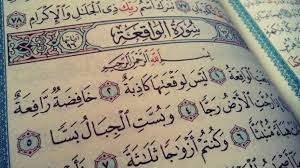 ٱسْمُ رَبِّكَ ذِى ٱلْجَلَٰلِ وَٱلْإِكْرَامِ ٧٨
سُورَةُ الْوَاقِعَةِ
بِسْمِ ٱللَّهِ ٱلرَّحْمَٰنِ ٱلرَّحِيمِ
ٱلْوَاقِعَةُ ١ لَيْسَ لِوَقْعَتِهَا كَاذِبَةٌ ٢ خَافِضَةٌ رَّافِعَةٌ
ٱلْأَرْضُ رَجًّا ٤ وَبُسَّتِ ٱلْجِبَالُ بَسًّا ٥
مُّنۢبَثًّا ٦ وَكُنتُمْ أَزْوَٰجًا ثَلَٰثَةً